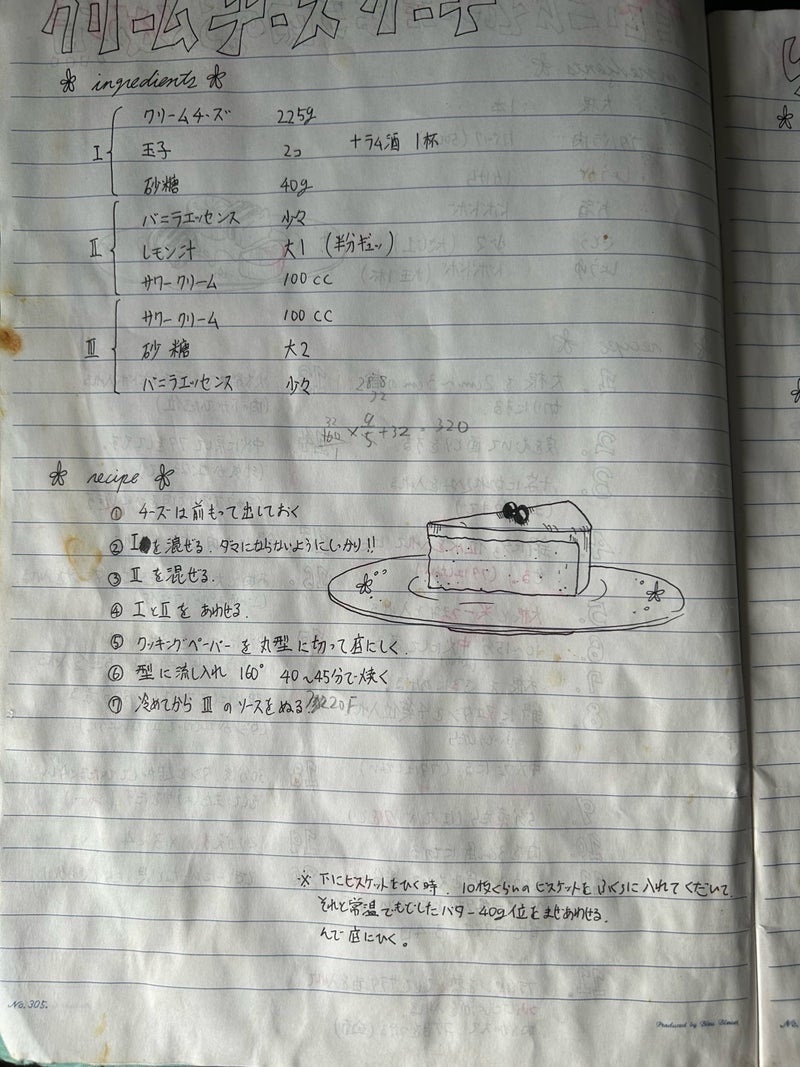 クリームチーズケーキ
ingredients
I クリームチーズ 225g
玉子 2コ +ラム酒 1杯
砂糖 40g
II バニラエッセンス 少々
レモン汁 大1 (半分ギュッ)
サワークリーム 100cc
III サワークリーム 100cc
砂糖 大2
バニラエッセンス 少々
288
32
32
160 × 9/5 + 32 = 320
1
recipe
① チーズは前もって出しておく
② Iを混ぜる. ダマにならないようにしっかり!!
③ IIを混ぜる.
④ IとIIをあわせる.
⑤ クッキングペーパーを丸型に切って底にしく.
⑥ 型に流し入れ 160° 40〜45分で焼く
⑦ 冷めてから IIIのソースをぬる. 320F
※ 下にビスケットをひく時. 10枚くらいのビスケットをふくろに入れてくだいて.
それと常温でもどしたバター40g位をまぜあわせる.
んで底にひく。
No. 305.
Produced by
No.